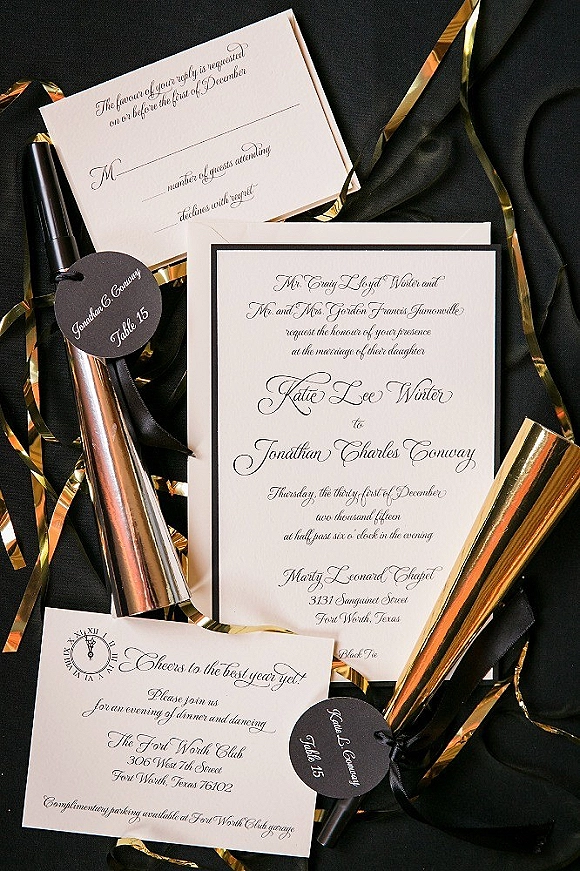 The favour of your reply is requested
on or before the first of December
M
number of guests attending
declines with regret
Jonathan C Conway
Table 15
Mr. Craig Lloyd Winter and
Mr. and Mrs. Gordon Francis Jumonville
request the honour of your presence
at the marriage of their daughter
Katie Lee Winter
to
Jonathan Charles Conway
Thursday, the thirty-first of December
two thousand fifteen
at half past six o' clock in the evening
Marty Leonard Chapel
3131 Sanguinet Street
Fort Worth, Texas
Black Tie
Cheers to the best year yet!
Please join us
for an evening of dinner and dancing
The Fort Worth Club
306 West 7th Street
Fort Worth, Texas 76102
Complimentary parking available at Fort Worth Club garage
Katie L. Conway
Table 15